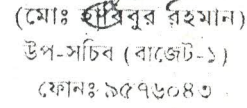 (মোঃ হাবিবুর রহমান)
উপ-সচিব (বাজেট-১)
ফোনঃ ৯৫৭৬০৪৩